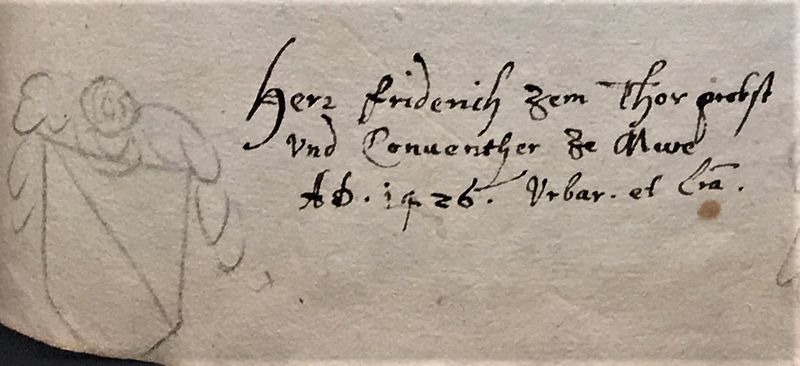 Herr Friderich zem Thor probst
vnd Conuenther ze Awe
AD. 1426. Vrbar. et Lra.